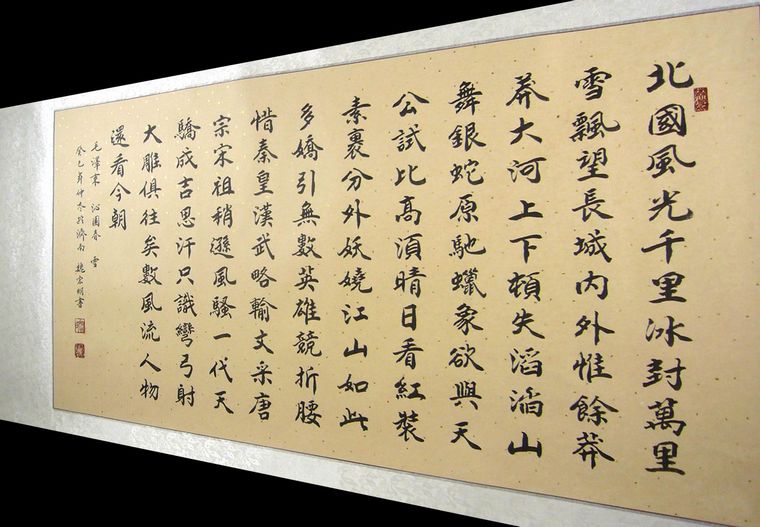 北國風光千里冰封萬里
雪飄望長城內外惟餘莽
莽大河上下頓失滔滔山
舞銀蛇原馳蠟象欲與天
公試比高須晴日看紅裝
素裹分外妖嬈江山如此
多嬌引無數英雄競折腰
惜秦皇漢武略輸文采唐
宗宋祖稍遜風騷一代天
驕成吉思汗只識彎弓射
大雕俱往矣數風流人物
還看今朝
毛澤東 沁園春 雪
癸巳年仲冬於濟南 明書